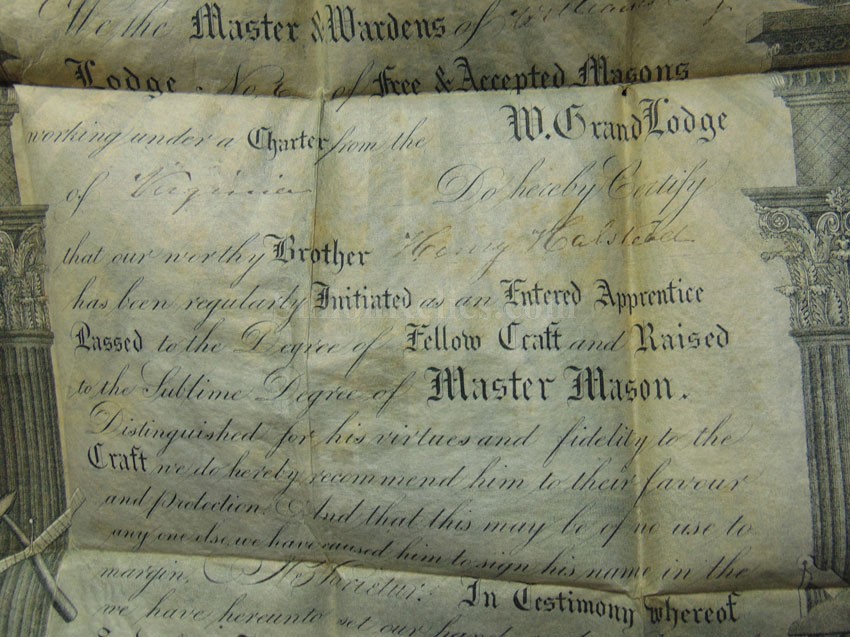 We the Master & Wardens of Williamsburg
Lodge. No. 6 of Free & Accepted Masons
working under a Charter from the W. Grand Lodge
of Virginia Do hereby Certify
that our worthy Brother Henry Halstead
has been regularly Initiated as an Entered Apprentice
Passed to the Degree of Fellow Craft and Raised
to the Sublime Degree of Master Mason.
Distinguished for his virtues and fidelity to the
Craft we do hereby recommend him to their favour
and protection. And that this may be of no use to
any one else, we have caused him to sign his name in the
margin. In Testimony whereof
we have hereunto set our